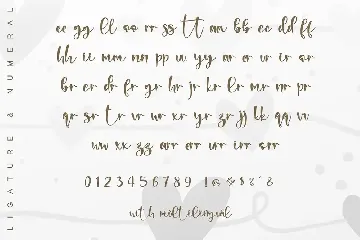 LIGATURE & NUMERAL
ee gg ll oo rr ss tt aa bb cc dd ff
hh ii mm nn pp uu yy ar er ur ir or
br er dr fr gr hr jr kr lr mr nr pr
qr sr tr vr wr xr yr zr jj kk qq vv
ww xx zz arr err urr irr orr
0 1 2 3 4 5 6 7 8 9
with multilingual